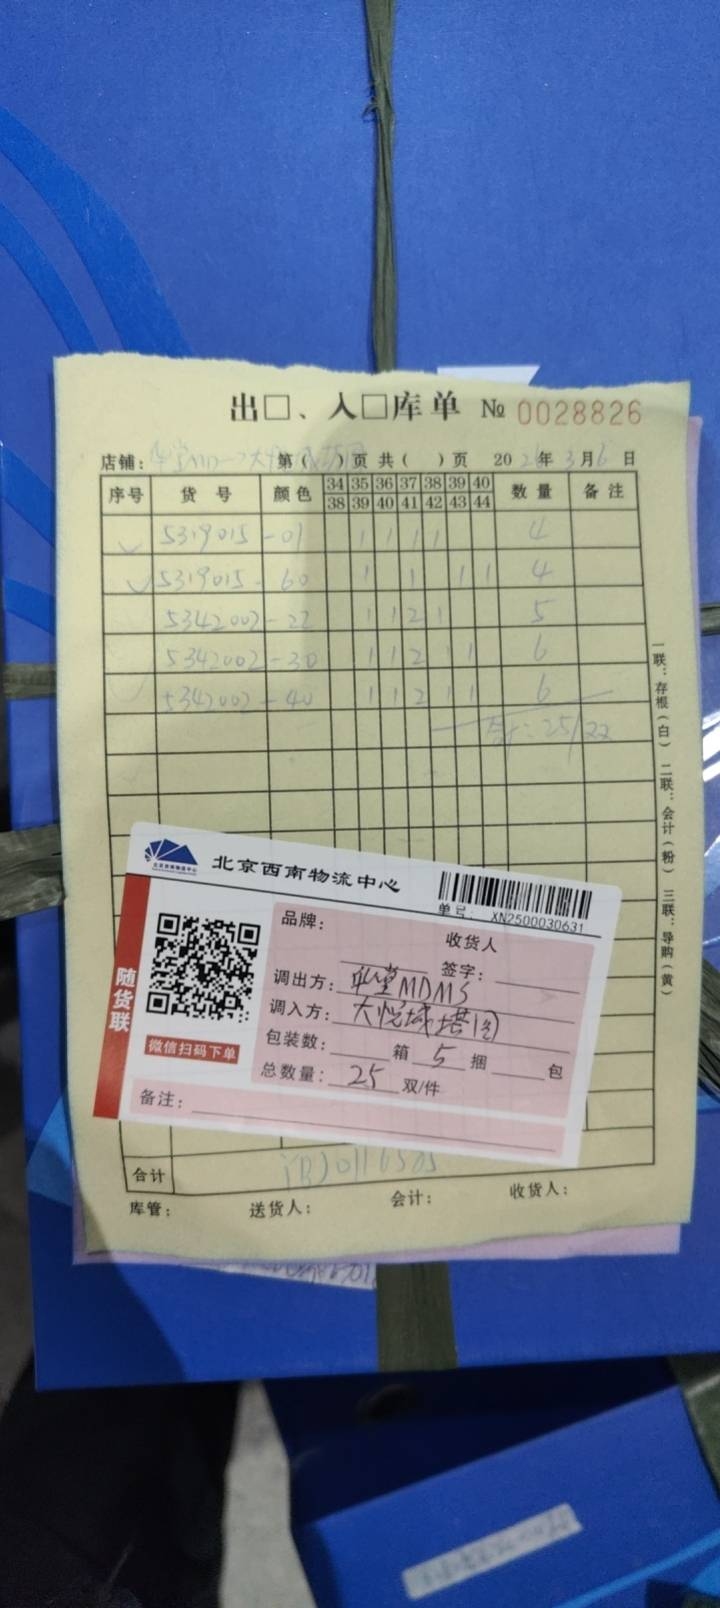 出□、入□库单 № 0028826
店铺: 第( )页 共( )页 20 年3月6日
序号 货号 颜色 34 35 36 37 38 39 40 数量 备注
38 39 40 41 42 43 44
5319015-01 1 1 1 1 4
5319015-60 1 1 1 1 4
5342002-22 1 1 2 1 5
5342002-30 1 1 2 1 1 6
5342002-40 1 1 2 1 1 6
25/22
一联:存根(白) 二联:会计(粉) 三联:导购(黄)
北京西南物流中心
北京西南物流中心
单号: XN2500030631
随货联
微信扫码下单
品牌:
收货人
签字:
调出方: 华堂MDMS
调入方: 大悦城塔图
包装数: 箱 5 捆 包
总数量: 25 双/件
备注:
合计
库管: 送货人: 会计: 收货人: